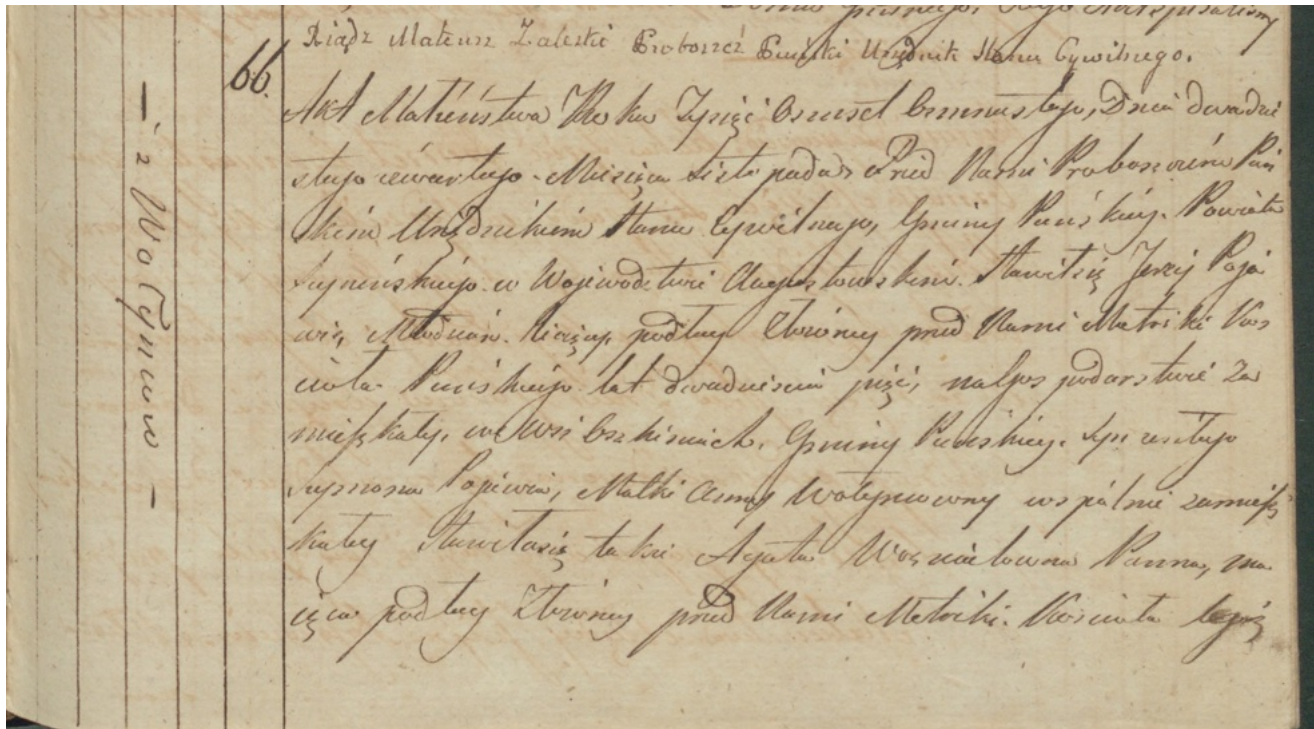 Domu pisanego, Tego Akt spisalismy
Xiądz Mateusz Zaleski Proboszcz Puński Urzędnik Stanu Cywilnego.
66.
— z Wołyniow —
Akt Małżeństwa Roku Tysiąc Osmset Osmnastego, Dnia dwadzie
stego czwartego. Miesiąca Listopada. Przed Nami Proboszczem Puń
skim Urzędnikiem Stanu Cywilnego, Gminy Puńskiej. Powiatu
Seyneńskiego w Wojewodztwie Augustowskim. Stawił się Jerzy Poja
wis, Młodzian. liczący, podług złożoney przed Nami Metriki Kos
ciola Puńskiego lat dwadziescia pięć, na gospodarstwie za
mieszkały, we Wsi Oszkiniach, Gminy Puńskiey. Syn zeszłego
Szymona Pojawia, Matki Anny Wołyniowny wspólnie zamiesz
kałey Stawiła się także Agata Panna, ma
iąca podług złożoney przed Nami Metriki. Kościoła tegoż